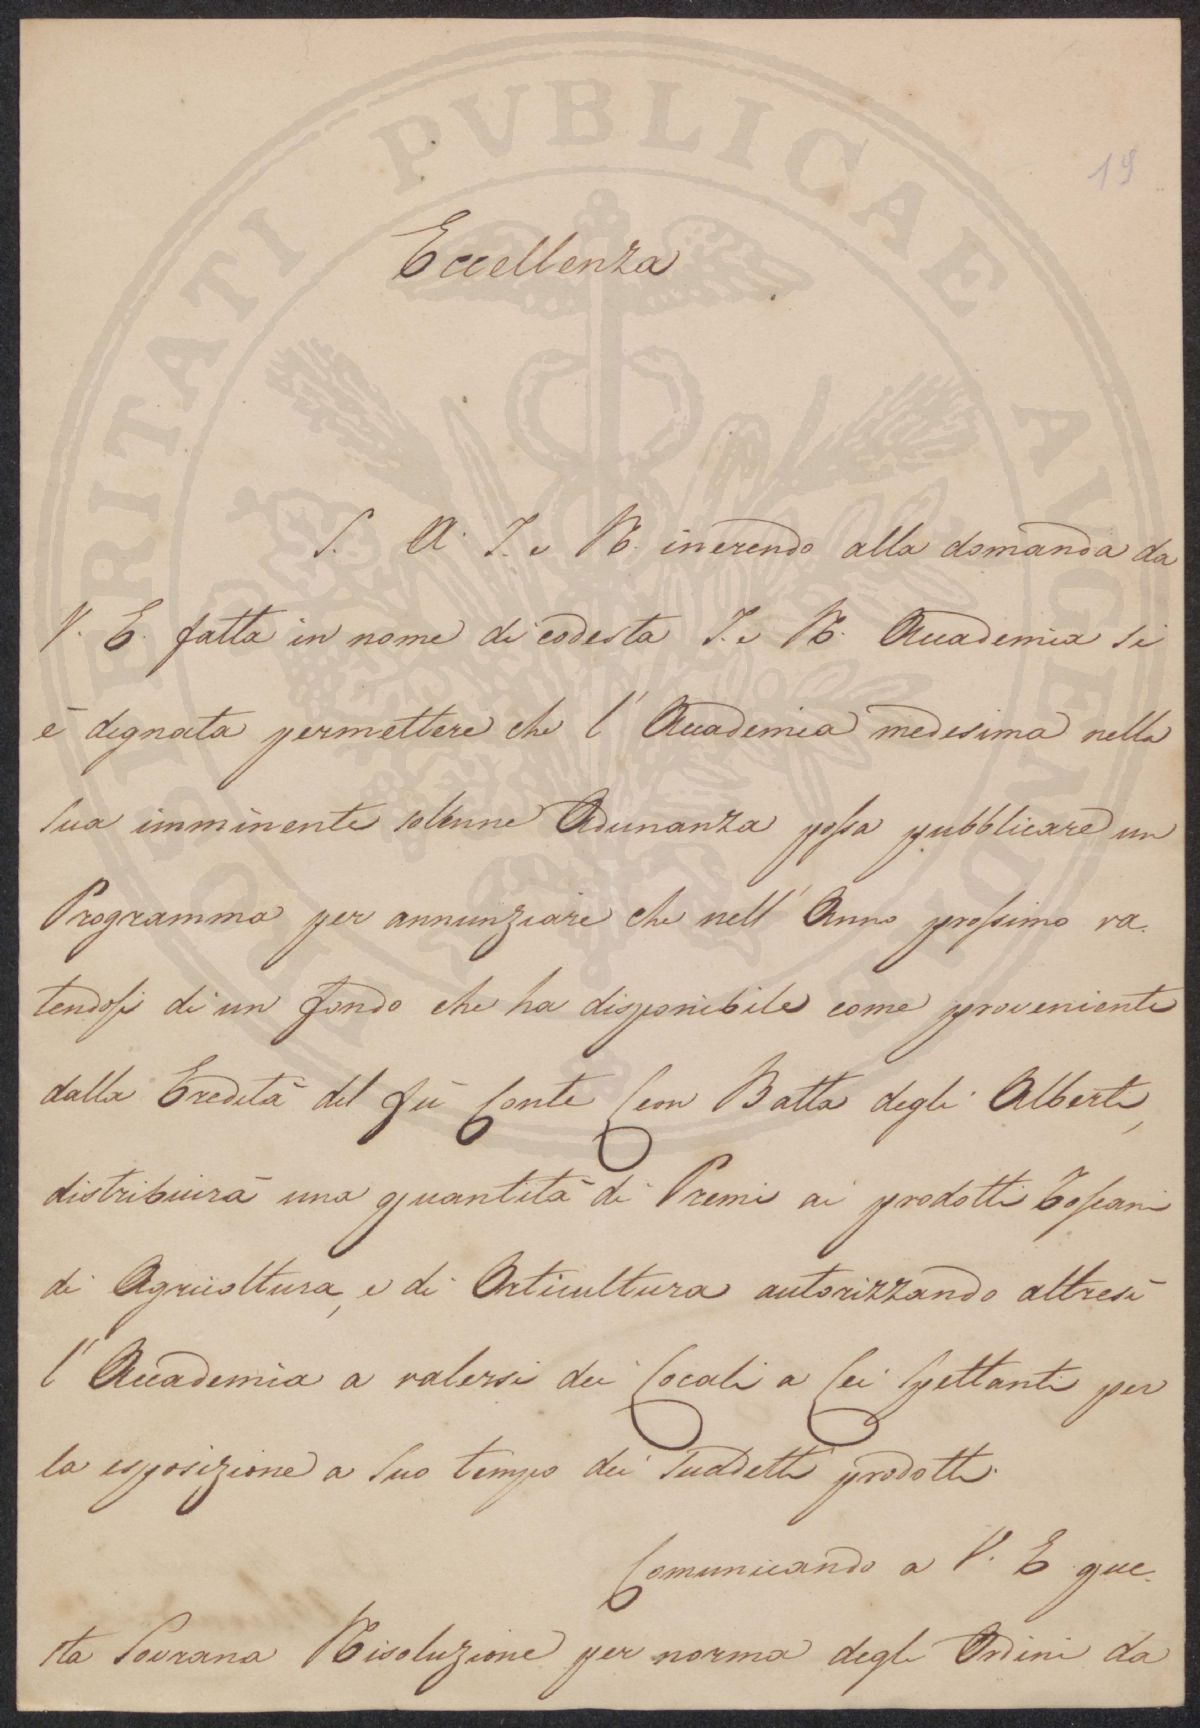 PROSPERITATI PVBLICAE AVGENDAE
19
Eccellenza
S. A. I. e R. inerendo alla domanda da
V. E. fatta in nome di codesta I. e R. Accademia si
è degnata permettere che l'Accademia medesima nella
sua imminente solenne Adunanza possa pubblicare un
Programma per annunziare che nell'Anno prossimo va-
lendosi di un fondo che ha disponibile come proveniente
dalla Eredità del fù Conte Leon Batta degli Alberti,
distribuirà una quantità di Premi ai prodotti Toscani
di Agricoltura, e di Orticultura autorizzando altresì
l'Accademia a valersi dei Locali a Lei spettanti per
la esposizione a suo tempo dei suddetti prodotti.
Comunicando a V. E. que-
sta Sovrana Risoluzione per norma degli Ordini da